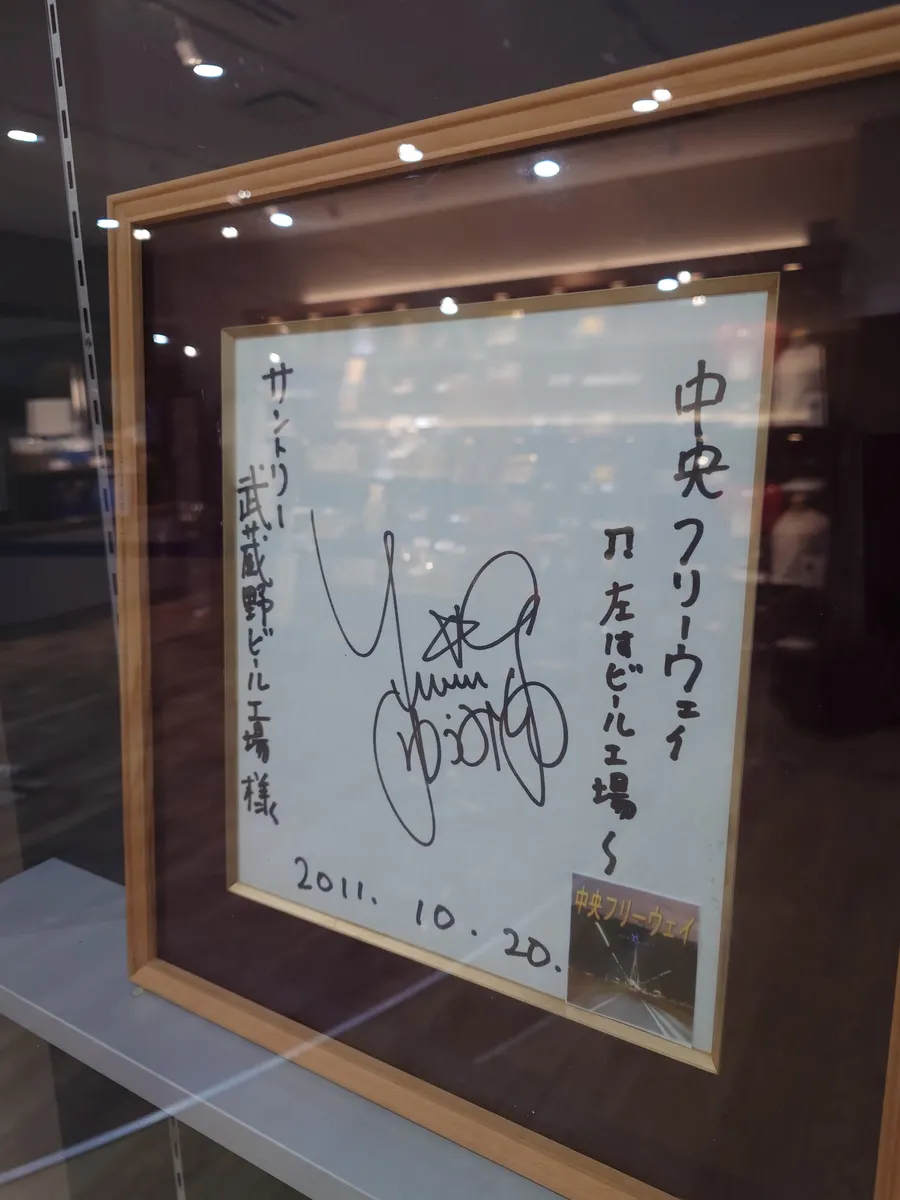 中央フリーウェイ
♫ 左はビール工場〜
サントリー
武蔵野ビール工場 様
2011. 10. 20.
中央フリーウェイ